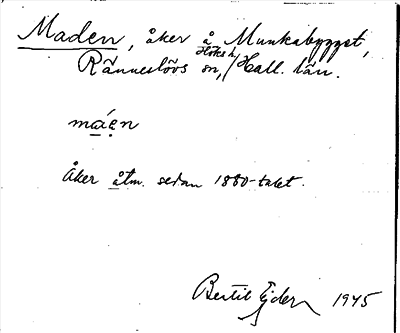 Maden, åker å Munkabygget,
Ränneslövs sn, Höks h. / Hall. län.
máẹn
Åker åtm. sedan 1880-talet.
Bertil Ejder 1945